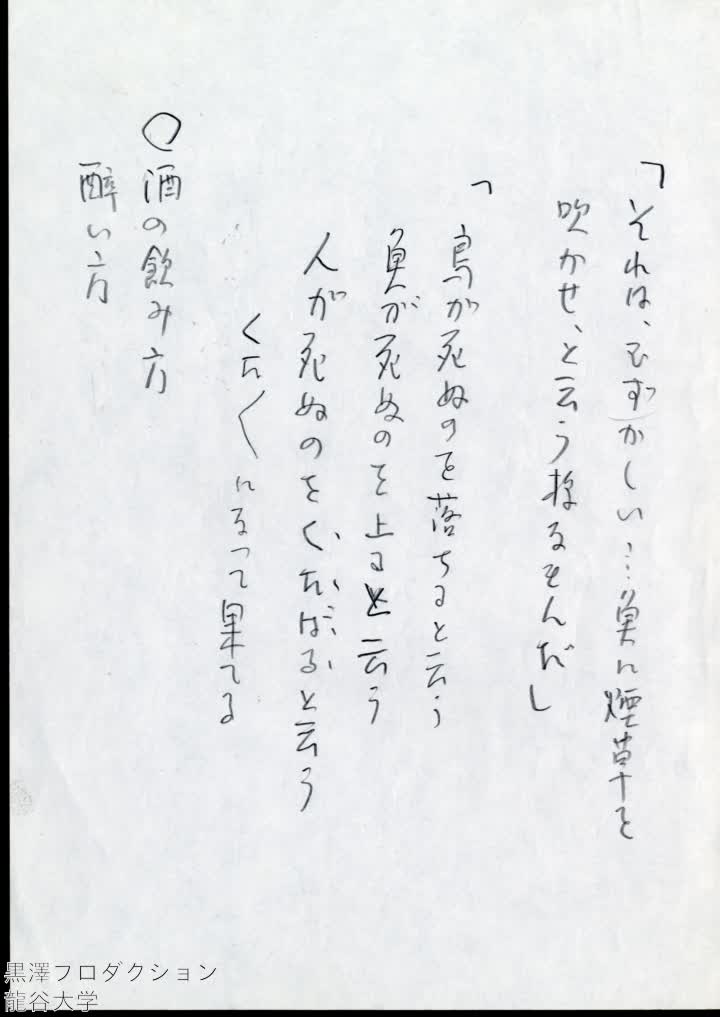 「それは、むずかしい…魚に煙草を
吹かせ、と云う様なもんだ」
「鳥が死ぬのを落ちると云う
魚が死ぬのを上ると云う
人が死ぬのをくたばると云う
くたくになって果てる
○酒の飲み方
酔い方
黒澤プロダクション
龍谷大学